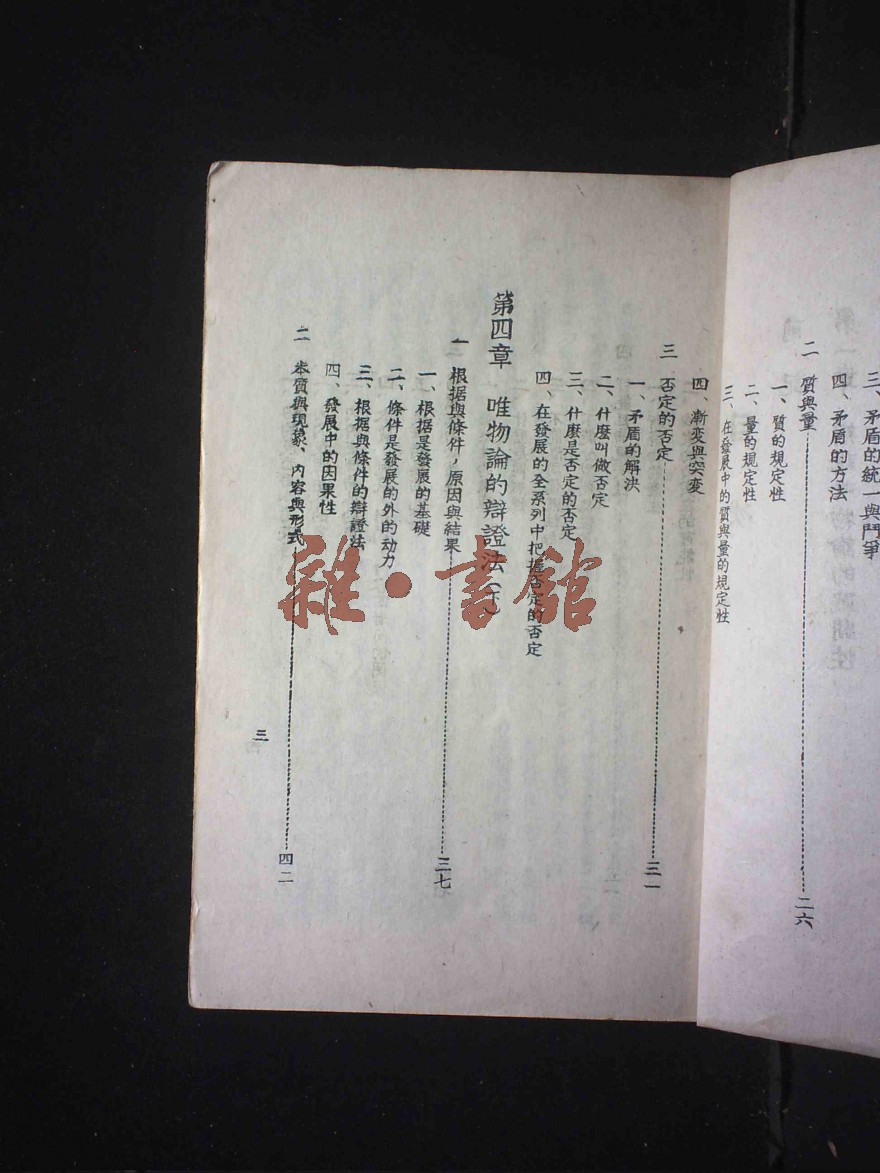 三、矛盾的統一與鬥爭
四、矛盾的方法
二 質與量……二六
一、質的規定性
二、量的規定性
三、在發展中的質與量的規定性
四、漸変與突変
三 否定的否定……三一
一、矛盾的解決
二、什麼叫做否定
三、什麼是否定的否定
四、在發展的全系列中把握否定的否定
第四章 唯物論的辯證法(下)
一 根据與條件,原因與結果……三七
一、根据是發展的基礎
二、條件是發展的外的动力
三、根据與條件的辯證法
四、發展中的因果性
二 本質與現象、內容與形式……四二
三
雜·書館